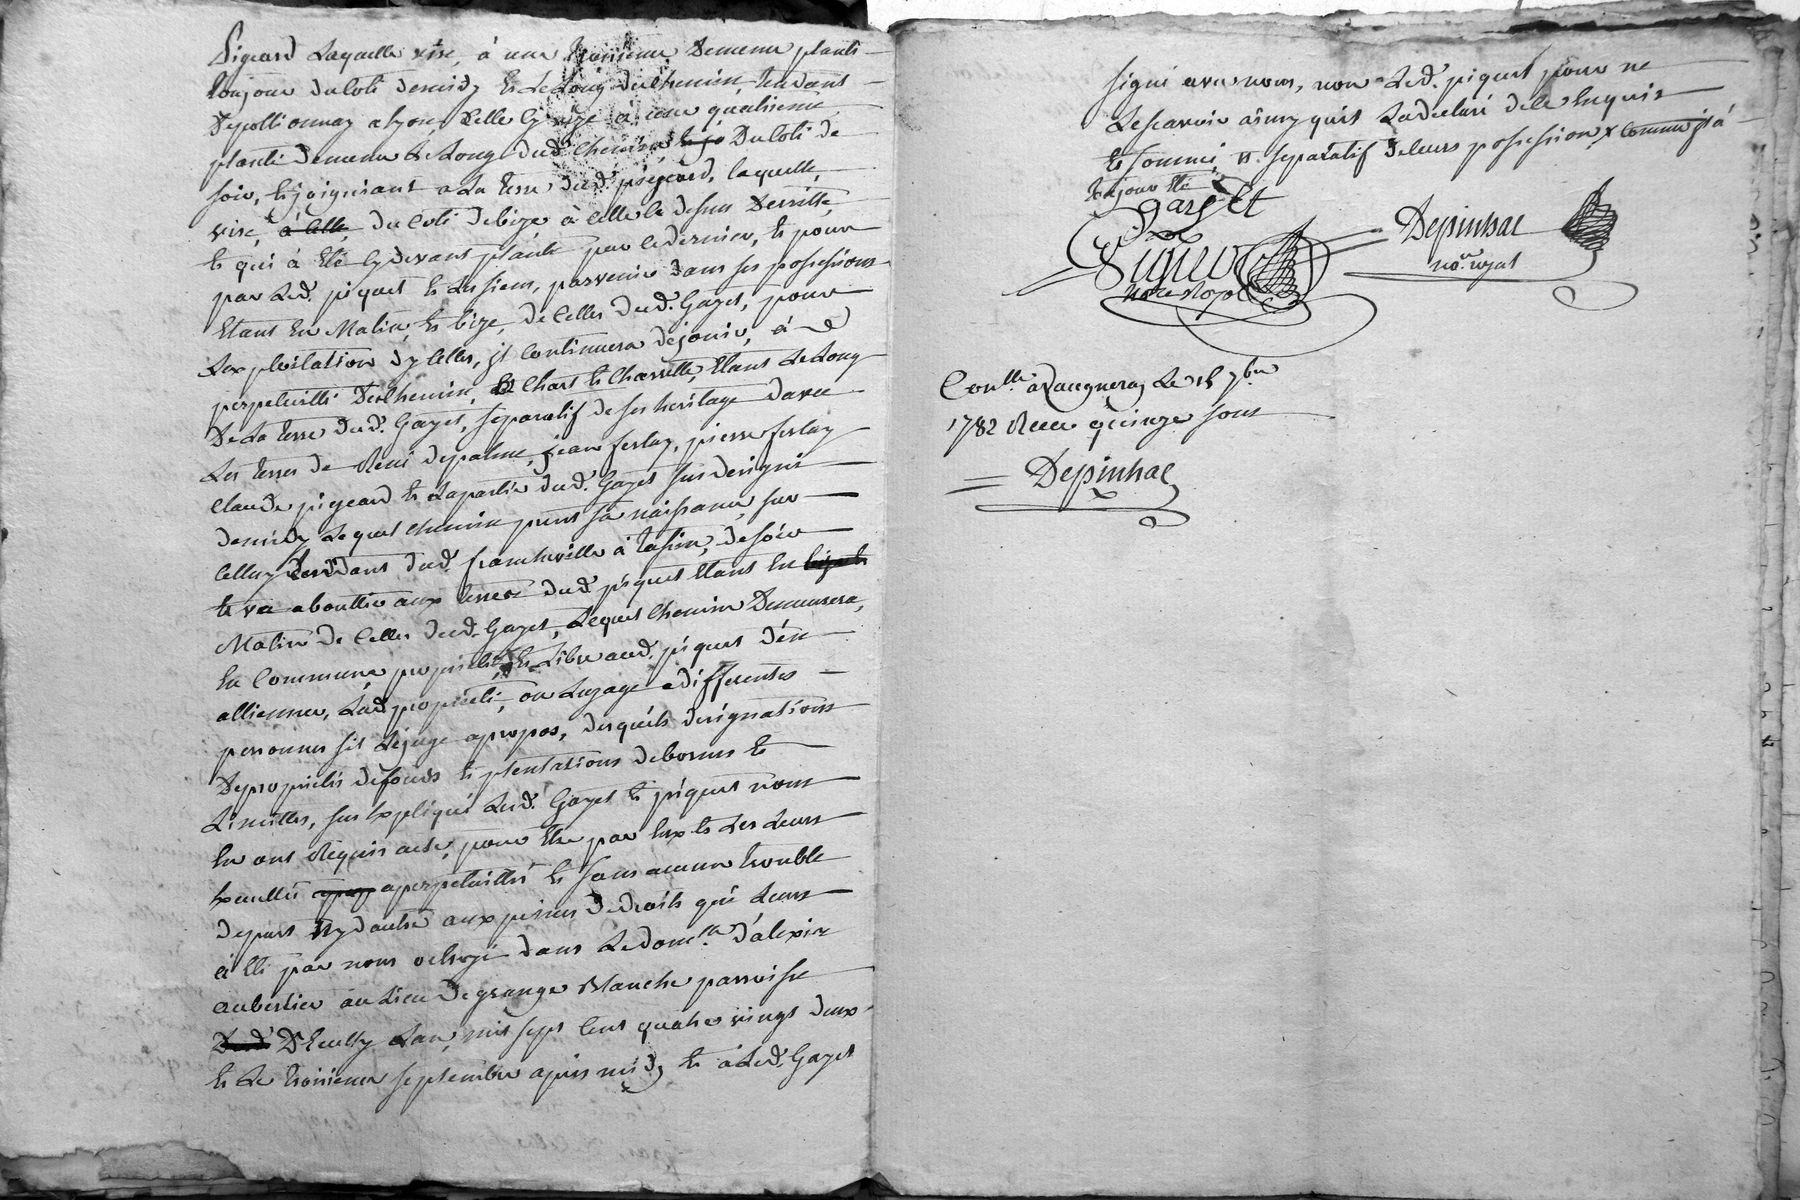 pigeard Laquelle vise, à une troisieme Dememe planté
toujour du coté demidy et Le Long du chemin, tendant
Depollionnay a lyon, Celle cy vize à une quatrieme
planté demême Le Long dud. chemin, Du Coté de
soir, et joignant a La terre dud. pigeard, laquelle,
vise, à Celle, du Coté debize à Celle cy dessus Derritte,
et qui à Eté cydevant planté par cedernier, et pour
par Led. piquet et Les siens, parvenir dans ses possessions
Etant En Matin, et bize, de Celles dud. Gayet, pour
Lexploitation dycelles, jl Continuera dejouir, à
perpetuitté Deschemin, et Chart et Charrette, Etant Le Long
De La terre dud. Gayet, separatif de ses heritage davec
Les terres de Remi depalme, jean ferlay, pierre ferlay
Claude pigeard et Lapartie dud. Gayet sus designé
demidy Lequel chemin prent sa naissance, sur
Celluy tendant dud. francheville à tassin, de soir
et va abouttir aux terres dud. piquet Etant En
Matin de Celles dud. Gayet, Lequel Chemin Demeurera,
En Commune propriété et Libre aud. piquet d'en
allienner, Lad. propriété, ou Luzage a differentes
personnes sil Lejuge apropos, desquels designations
De propriétés defonds et plentations debornes et
Limittes, sus Expliqué Lesd. Gayet et piquet nous
En ont Requis acte, pour Etre par Eux et Les Leurs
Exeuttés aperpetuitté et sans aucun trouble
depart ny dautre aux peines dedroits qui Leurs
à Eté par nous octroyé dans Ledomlle. d'alexis
aubertier au Lieu De grange Blanche parroisse
D'Ecully Lan, mil sept Cent quatre vingt deux
et Le troisieme septembre apres midy et à Led. Gayet
signé avec nous, non Led. piquet pour ne
Lescavoir ainsy quil La declaré dele Enquis
et sommé, separatif deleurs possession x Comme jl à
toujour Eté
Gayet
notre Royal
Depinhac
nore. royal
Conlle avaugneray Le 15 7bre
1782 Receu quinze sous
Depinhac